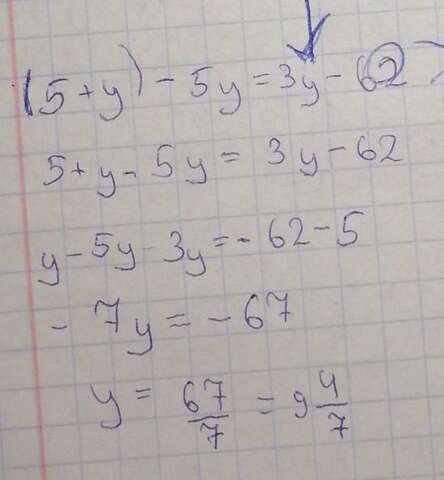 (5+y)-5y=3y-62
5+y-5y=3y-62
y-5y-3y=-62-5
-7y=-67
y=67/7=9 4/7